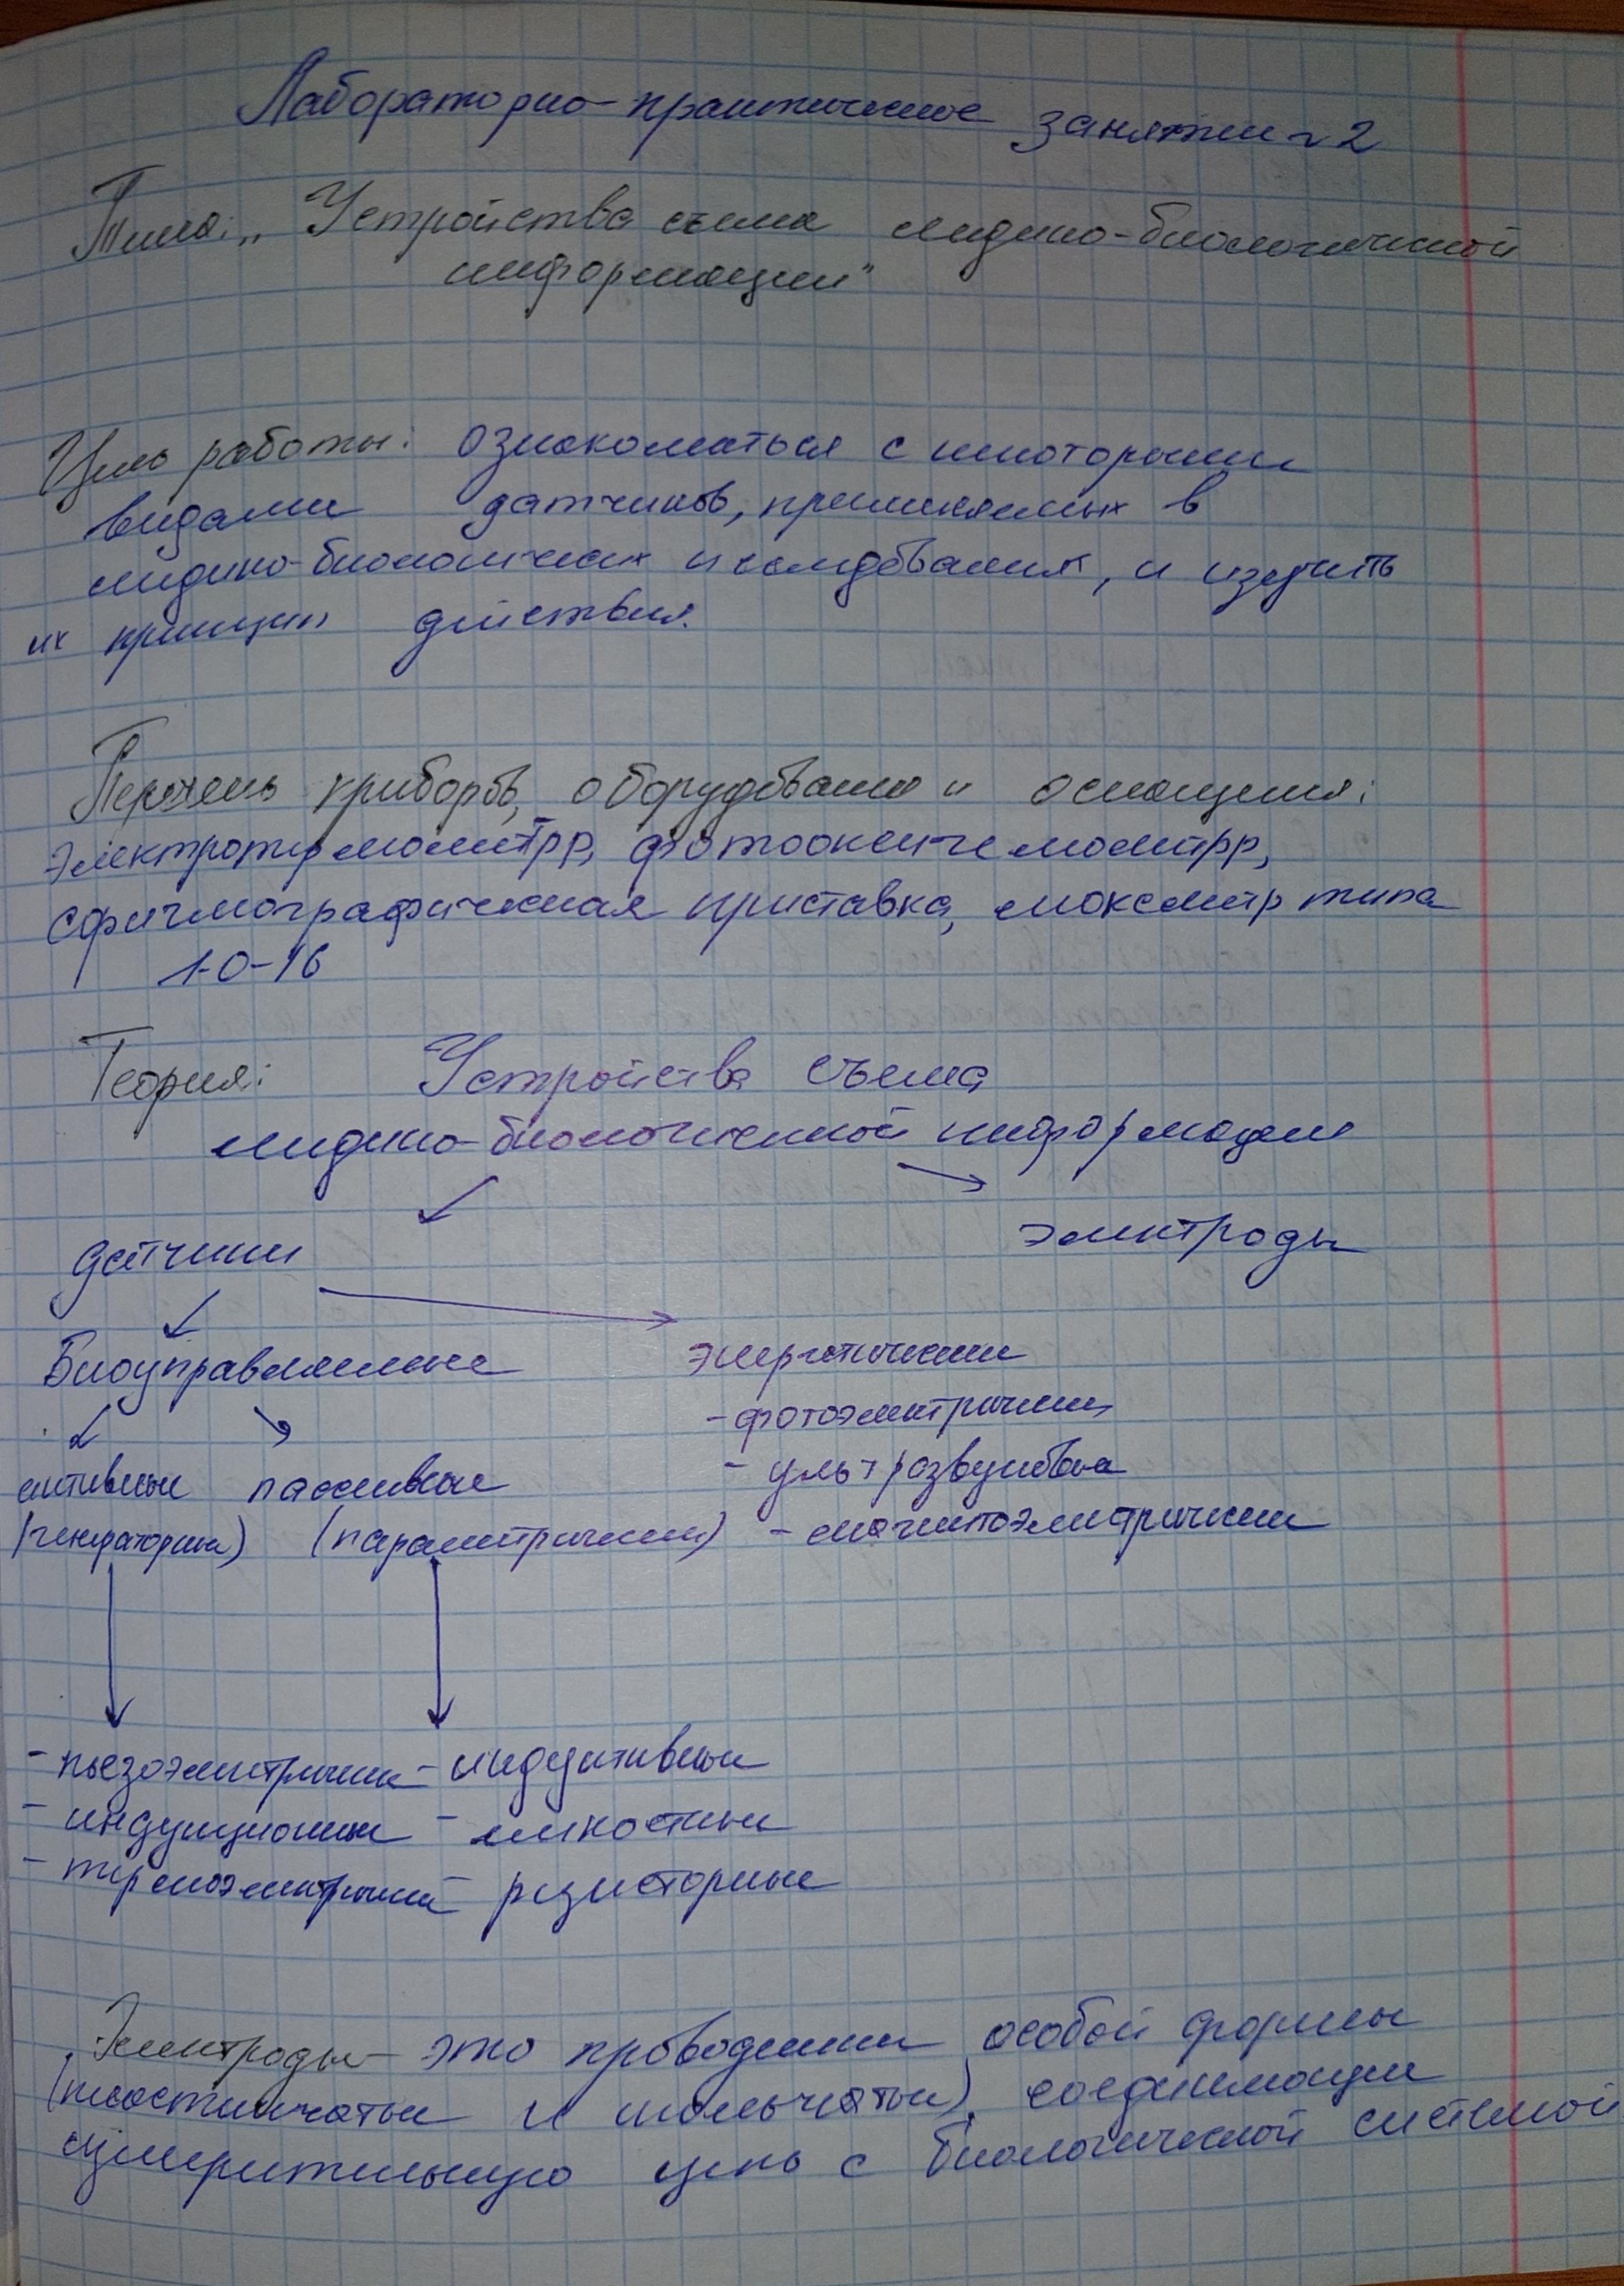 Лабораторно-практическое занятие №2
Тема: „Устройства съема медико-биологической
информации"
Цель работы: ознакомиться с некоторыми
видами датчиков, применяемых в
медико-биологических исследованиях, и изучить
их принцип действия.
Перечень приборов, оборудования и оснащения:
электротермометр, фотооксигемометр,
сфигмографическая приставка, типа
1-0-16
Теория: Устройства съема
медико-биологической информации
датчики электроды
Биоуправляемые энергетические
- фотоэлектрические
активные пассивные - ультразвуковые
(генераторные) (параметрические) - магнитоэлектрические
- пьезоэлектрические - индуктивные
- индукционные - емкостные
- термоэлектрические - резисторные
Электроды - это проводники особой формы
(пластинчатые и игольчатые), соединяющие
измерительную цепь с биологической системой